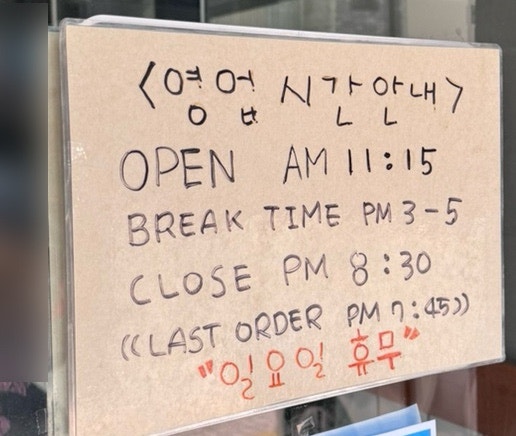 <영업시간안내>
OPEN AM 11:15
BREAK TIME PM 3-5
CLOSE PM 8:30
((LAST ORDER PM 7:45))
"일요일 휴무"